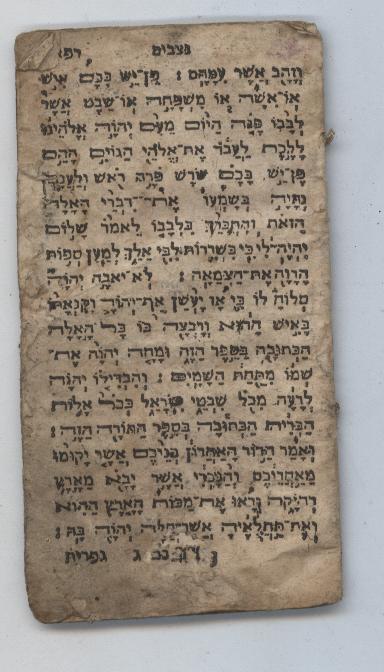 נצבים רפא
וְזָהָב אֲשֶׁר עִמָּהֶם׃ פֶּן־יֵשׁ בָּכֶם אִישׁ
אוֹ־אִשָּׁה אוֹ מִשְׁפָּחָה אוֹ־שֵׁבֶט אֲשֶׁר
לְבָבוֹ פֹנֶה הַיּוֹם מֵעִם יְהוָה אֱלֹהֵינוּ
לָלֶכֶת לַעֲבֹד אֶת־אֱלֹהֵי הַגּוֹיִם הָהֵם
פֶּן־יֵשׁ בָּכֶם שֹׁרֶשׁ פֹּרֶה רֹאשׁ וְלַעֲנָה׃
וְהָיָה בְּשָׁמְעוֹ אֶת־דִּבְרֵי הָאָלָה
הַזֹּאת וְהִתְבָּרֵךְ בִּלְבָבוֹ לֵאמֹר שָׁלוֹם
יִהְיֶה־לִּי כִּי בִּשְׁרִרוּת לִבִּי אֵלֵךְ לְמַעַן סְפוֹת
הָרָוָה אֶת־הַצְּמֵאָה׃ לֹא־יֹאבֶה יְהוָה
סְלוֹחַ לוֹ כִּי אָז יֶעְשַׁן אַף־יְהוָה וְקִנְאָתוֹ
בָּאִישׁ הַהוּא וְרָבְצָה בּוֹ כָּל־הָאָלָה
הַכְּתוּבָה בַּסֵּפֶר הַזֶּה וּמָחָה יְהוָה אֶת־
שְׁמוֹ מִתַּחַת הַשָּׁמָיִם׃ וְהִבְדִּילוֹ יְהוָה
לְרָעָה מִכֹּל שִׁבְטֵי יִשְׂרָאֵל כְּכֹל אָלוֹת
הַבְּרִית הַכְּתוּבָה בְּסֵפֶר הַתּוֹרָה הַזֶּה׃
וְאָמַר הַדּוֹר הָאַחֲרוֹן בְּנֵיכֶם אֲשֶׁר יָקוּמוּ
מֵאַחֲרֵיכֶם וְהַנָּכְרִי אֲשֶׁר יָבֹא מֵאֶרֶץ
רְחוֹקָה וְרָאוּ אֶת־מַכּוֹת הָאָרֶץ הַהִוא
וְאֶת־תַּחֲלֻאֶיהָ אֲשֶׁר־חִלָּה יְהוָה בָּהּ׃
ג גפרית